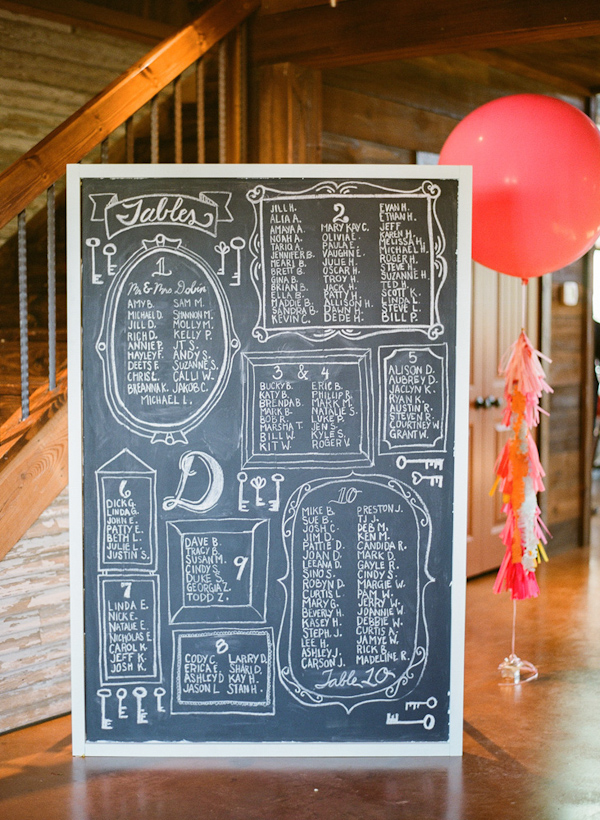 Tables
1
Mr & Mrs Dobin
AMY B. SAM M.
MICHAEL D. SHANNON M.
JILL D. MOLLY M.
RICH D. KELLY P.
ANNIE P. J.T. S.
HAYLEY F. ANDY S.
DEETS E. SUZANNE S.
CHRIS L. CALLI W.
BREANNA K. JAKOB C.
MICHAEL L.
2
JILL H.
ALIA A.
AMAYA A.
NOAH A.
TARIQ A.
JENNIFER B.
MEARI B.
BRETT B.
GINA B.
BRIAN B.
ELLA B.
MADDIE B.
SANDRA B.
KEVIN C.
MARY KAY C.
OLIVIA E.
PAULA E.
VAUGHN E.
JULIE H.
OSCAR H.
TROY H.
JACK H.
PATTY H.
ALLISON H.
DAWN H.
DEDE H.
EVAN H.
ETHAN H.
JEFF
KAREN H.
MELISSA H.
MICHAEL H.
ROGER H.
STEVE H.
SUZANNE H.
TED H.
SCOTT K.
LINDA L.
STEVE L.
BILL P.
3 & 4
BUCKY B. ERIC B.
KATY B. PHILLIP R.
BRENDA B. MARK M.
MARK B. NATALIE S.
BOB R. LUKE P.
MARSHA T. JEN S.
BILL W. KYLE S.
KIT W. ROGER V.
5
ALISON D.
AUBREY D.
JACLYN K.
RYAN K.
AUSTIN R.
STEVEN R.
COURTNEY W.
GRANT W.
6
DICK G.
LINDA G.
JOHN E.
PATTY E.
BETH L.
JULIE L.
JUSTIN S.
D
7
LINDA E.
NICK E.
NATALIE E.
NICHOLAS E.
CAROL K.
JEFF K.
JOSH K.
9
DAVE B.
TRACY B.
SUSAN M.
CINDY S.
DUKE S.
GEORGIA Z.
TODD Z.
8
CODY C. LARRY D.
ERICA E. SHARI D.
ASHLEY D KAY H.
JASON L STAN H.
10
MIKE B.
SUE B.
JOSH C.
JIM D.
PATTIE D.
JOAN D.
LEEANA D.
SINO S.
ROBYN D.
CURTIS L.
MARY G.
BEVERLY H.
KASEY H.
STEPH. J.
LEE H.
ASHLEY J.
CARSON J.
PRESTON J.
TJ J.
DEB M.
KEN M.
CANDIDA R.
MARK D.
GAYLE R.
CINDY S.
MARGIE W.
PAM W.
JERRY W.
JOANNIE W.
DEBBIE W.
CURTIS A.
JAMYE W.
RICK B.
MADELINE R.
Table 10